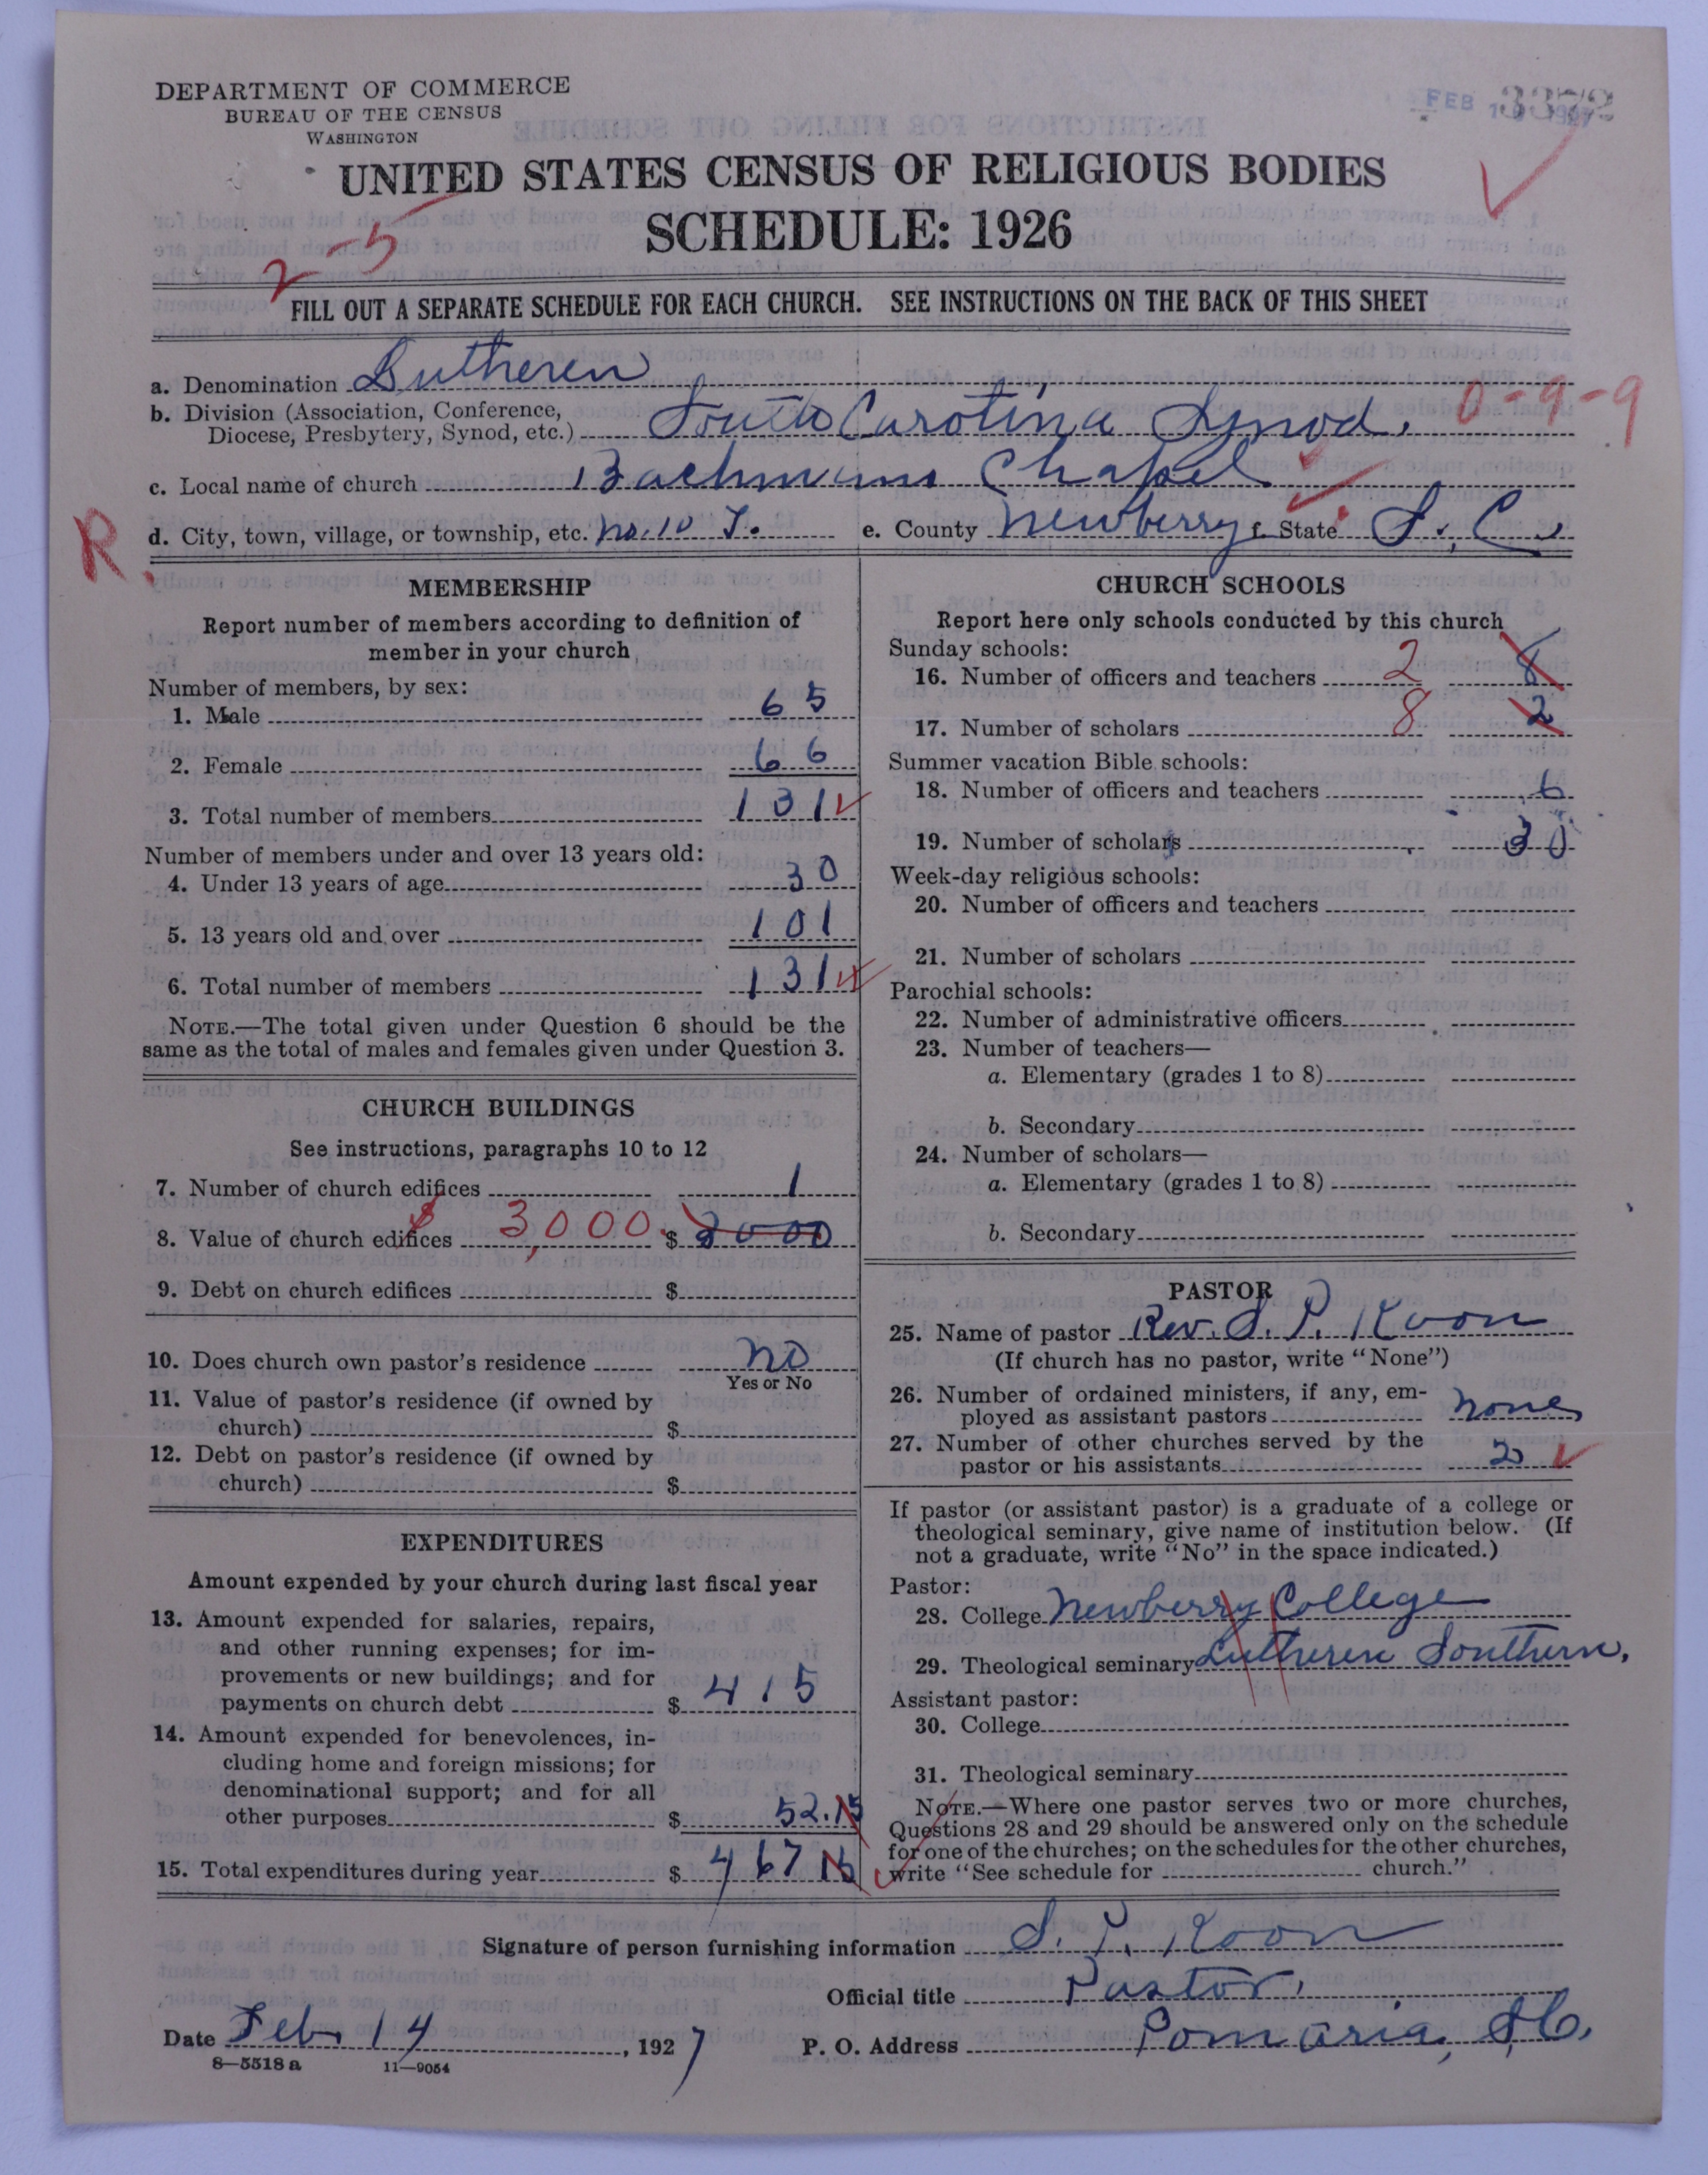 DEPARTMENT OF COMMERCE
BUREAU OF THE CENSUS
WASHINGTON
FEB
3372
UNITED STATES CENSUS OF RELIGIOUS BODIES
SCHEDULE: 1926
2-5
FILL OUT A SEPARATE SCHEDULE FOR EACH CHURCH. SEE INSTRUCTIONS ON THE BACK OF THIS SHEET
a. Denomination Lutheren
b. Division (Association, Conference,
Diocese, Presbytery, Synod, etc.) South Carolina Synod. 0-9-9
c. Local name of church Bachmans Chapel
R.
d. City, town, village, or township, etc. no. 10 T. e. County Newberry f. State S. C.
MEMBERSHIP
Report number of members according to definition of
member in your church
Number of members, by sex:
1. Male 65
2. Female 66
3. Total number of members 131
Number of members under and over 13 years old:
4. Under 13 years of age 30
5. 13 years old and over 101
6. Total number of members 131
NOTE.—The total given under Question 6 should be the
same as the total of males and females given under Question 3.
CHURCH BUILDINGS
See instructions, paragraphs 10 to 12
7. Number of church edifices 1
8. Value of church edifices $ 3,000. $ 3000
9. Debt on church edifices $
10. Does church own pastor's residence no
Yes or No
11. Value of pastor's residence (if owned by
church) $
12. Debt on pastor's residence (if owned by
church) $
EXPENDITURES
Amount expended by your church during last fiscal year
13. Amount expended for salaries, repairs,
and other running expenses; for im-
provements or new buildings; and for
payments on church debt $ 415
14. Amount expended for benevolences, in-
cluding home and foreign missions; for
denominational support; and for all
other purposes $ 52.15
15. Total expenditures during year $ 467 15
CHURCH SCHOOLS
Report here only schools conducted by this church
Sunday schools:
16. Number of officers and teachers 2 8
17. Number of scholars 8 2
Summer vacation Bible schools:
18. Number of officers and teachers 6
19. Number of scholars 30
Week-day religious schools:
20. Number of officers and teachers
21. Number of scholars
Parochial schools:
22. Number of administrative officers
23. Number of teachers—
a. Elementary (grades 1 to 8)
b. Secondary
24. Number of scholars—
a. Elementary (grades 1 to 8)
b. Secondary
PASTOR
25. Name of pastor Rev. S. P. Koon
(If church has no pastor, write "None")
26. Number of ordained ministers, if any, em-
ployed as assistant pastors none
27. Number of other churches served by the
pastor or his assistants 2
If pastor (or assistant pastor) is a graduate of a college or
theological seminary, give name of institution below. (If
not a graduate, write "No" in the space indicated.)
Pastor:
28. College Newberry College
29. Theological seminary Lutheren Southern.
Assistant pastor:
30. College
31. Theological seminary
NOTE.—Where one pastor serves two or more churches,
Questions 28 and 29 should be answered only on the schedule
for one of the churches; on the schedules for the other churches,
write "See schedule for church."
Signature of person furnishing information S. P. Koon
Official title Pastor.
Date Feb. 14, 1927 P. O. Address Pomaria, S.C.
8—5518 a 11—9054